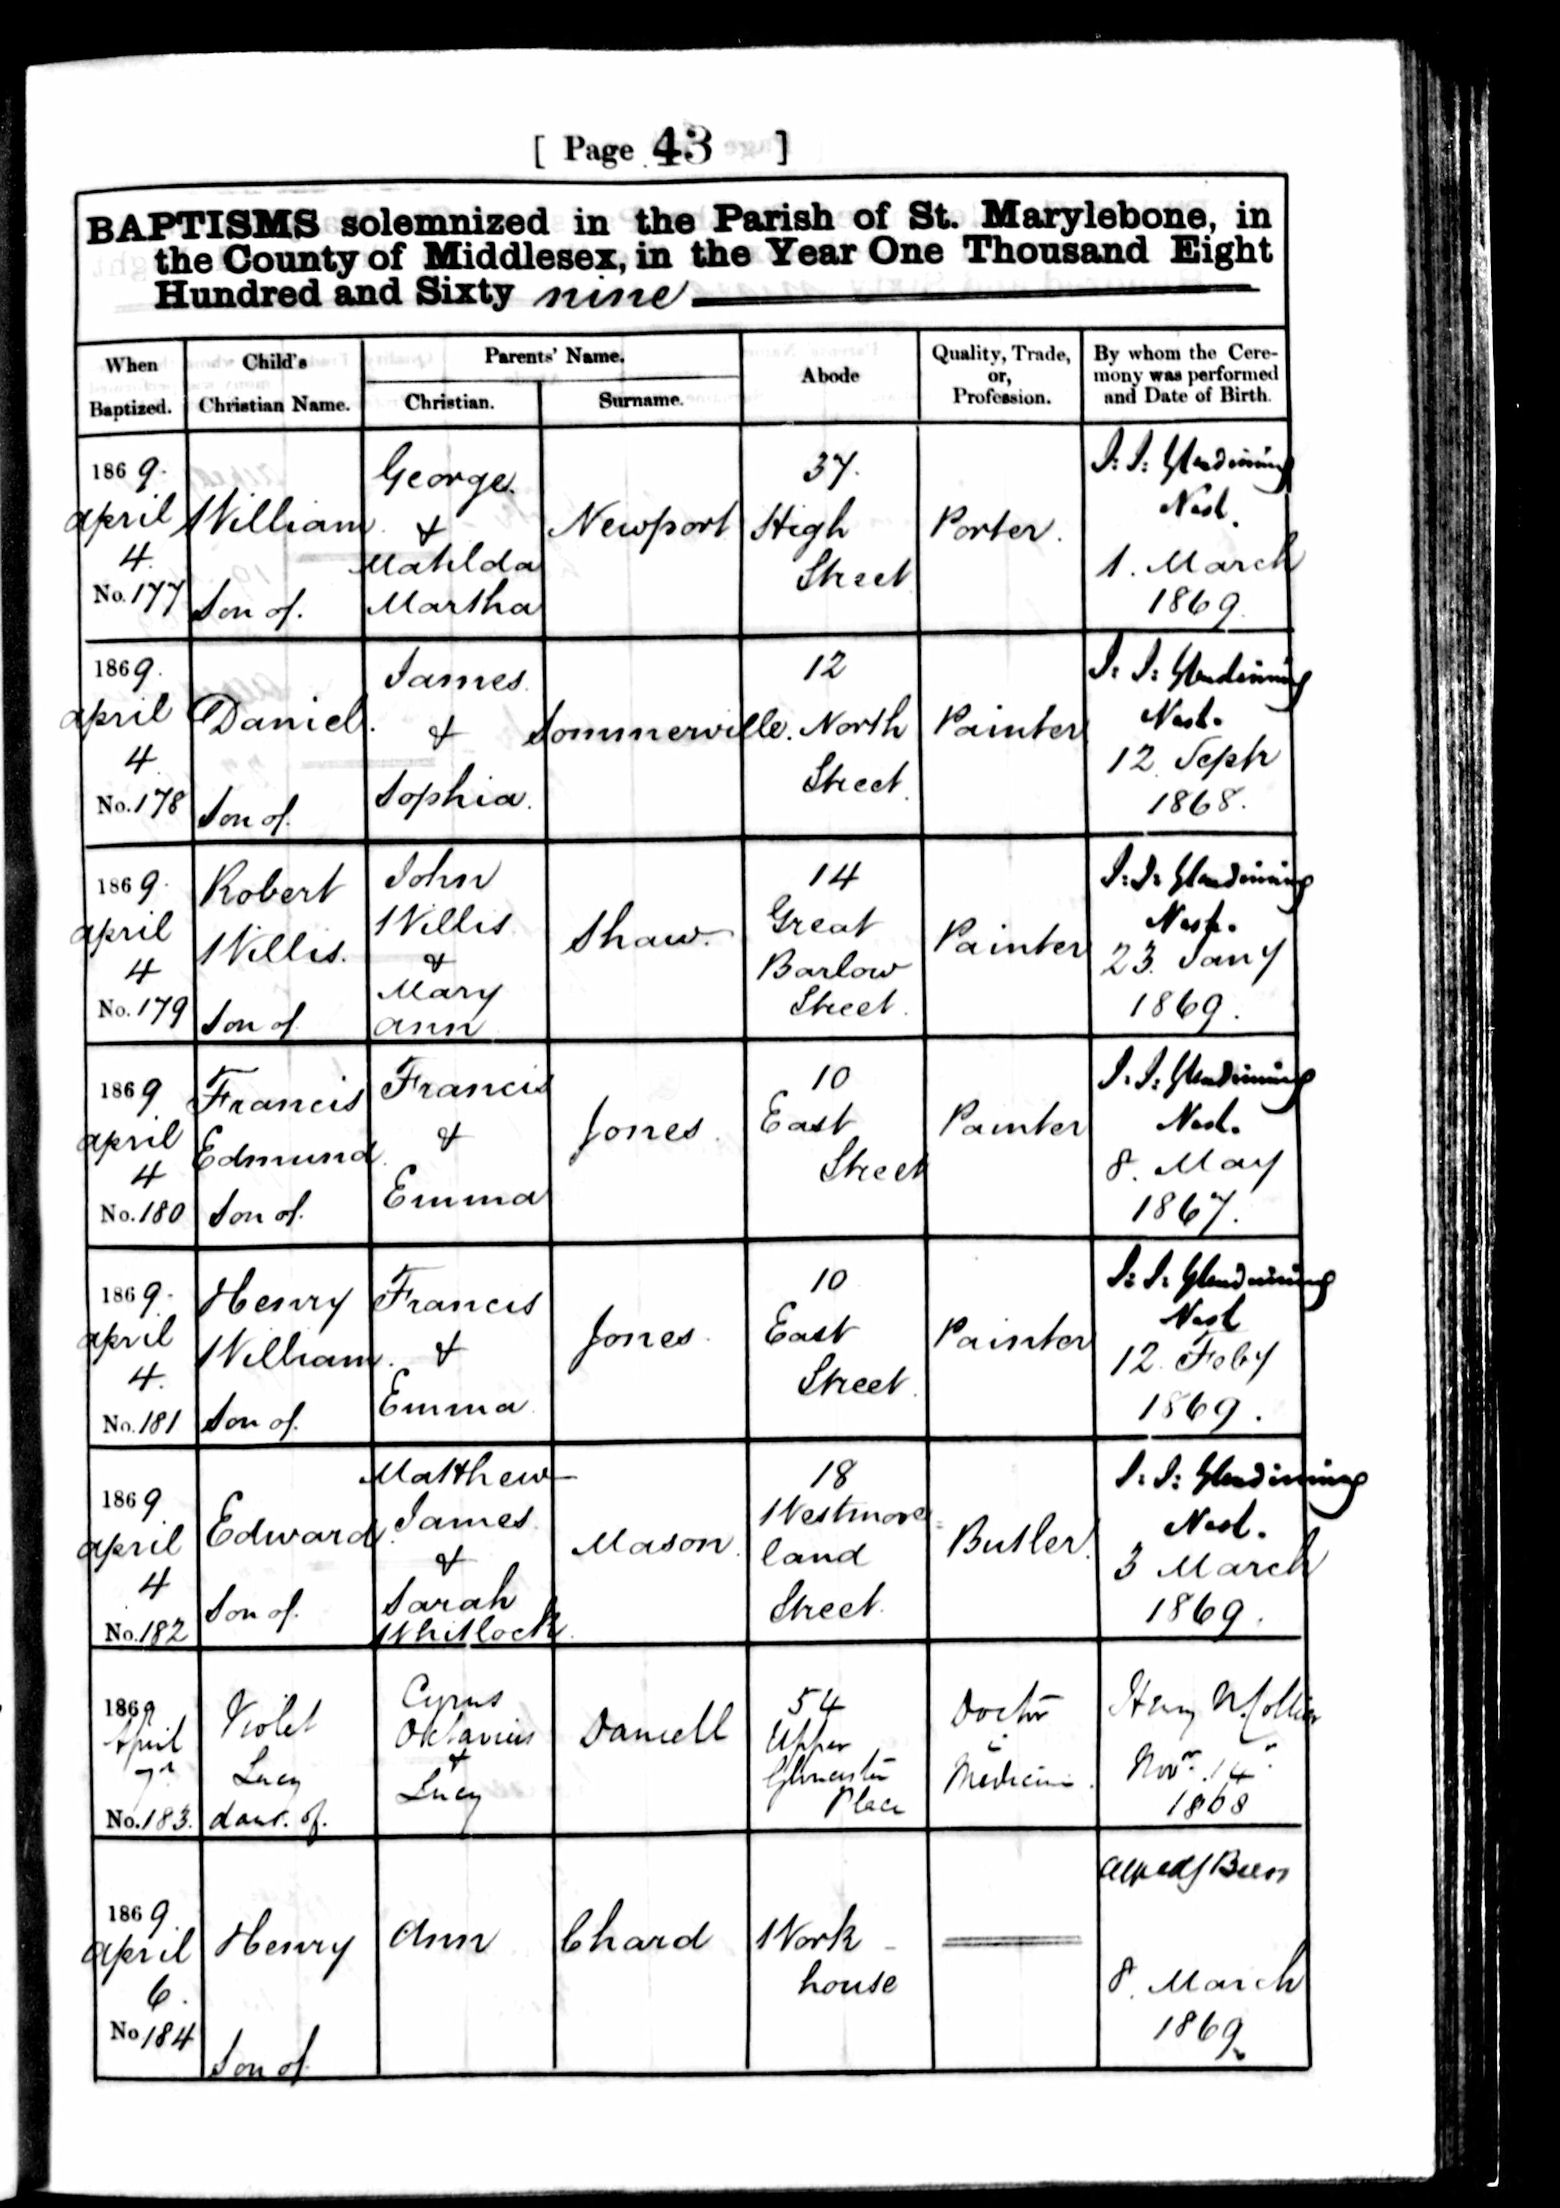 [ Page 43 ]
BAPTISMS solemnized in the Parish of St. Marylebone, in
the County of Middlesex, in the Year One Thousand Eight
Hundred and Sixty nine
When
Baptized.
Child's
Christian Name.
Parents' Name.
Christian.
Surname.
Abode
Quality, Trade,
or,
Profession.
By whom the Cere-
mony was performed
and Date of Birth.
1869.
April
4.
No. 177
William
Son of.
George
&
Matilda
Martha
Newport
37.
High
Street
Porter.
J. J. Glendinning
1. March
1869.
1869.
April
4.
No. 178
Daniel.
Son of.
James
&
Sophia.
Sommerville.
12
North
Street.
Painter
J. J. Glendinning
12. Septr
1868.
1869.
April
4
No. 179
Robert
Willis.
Son of
John
Willis
&
Mary
Ann
Shaw.
14
Great
Barlow
Street.
Painter
J. J. Glendinning
23. Jany
1869.
1869
April
4
No. 180
Francis
Edmund
Son of.
Francis
&
Emma
Jones.
10
East
Street
Painter
J. J. Glendinning
8. May
1867.
1869.
April
4.
No. 181
Henry
William.
Son of.
Francis
&
Emma.
Jones.
10
East
Street.
Painter
J. J. Glendinning
12. Feby
1869.
1869
April
4
No. 182
Edward
Son of.
Matthew
James
&
Sarah
Whitlock.
Mason.
18
Westmore=
land
Street.
Butler.
J. J. Glendinning
3 March
1869.
1869
April
7th
No. 183.
Violet
Lucy
daur. of.
Cyrus
Octavius
&
Lucy
Daniell
54
Upper
Gloucester
Place
Doctor
in
Medicine.
Novr. 14
1868
1869.
April
6.
No 184
Henry
Son of
Ann
Chard
Work-
house
8. March
1869